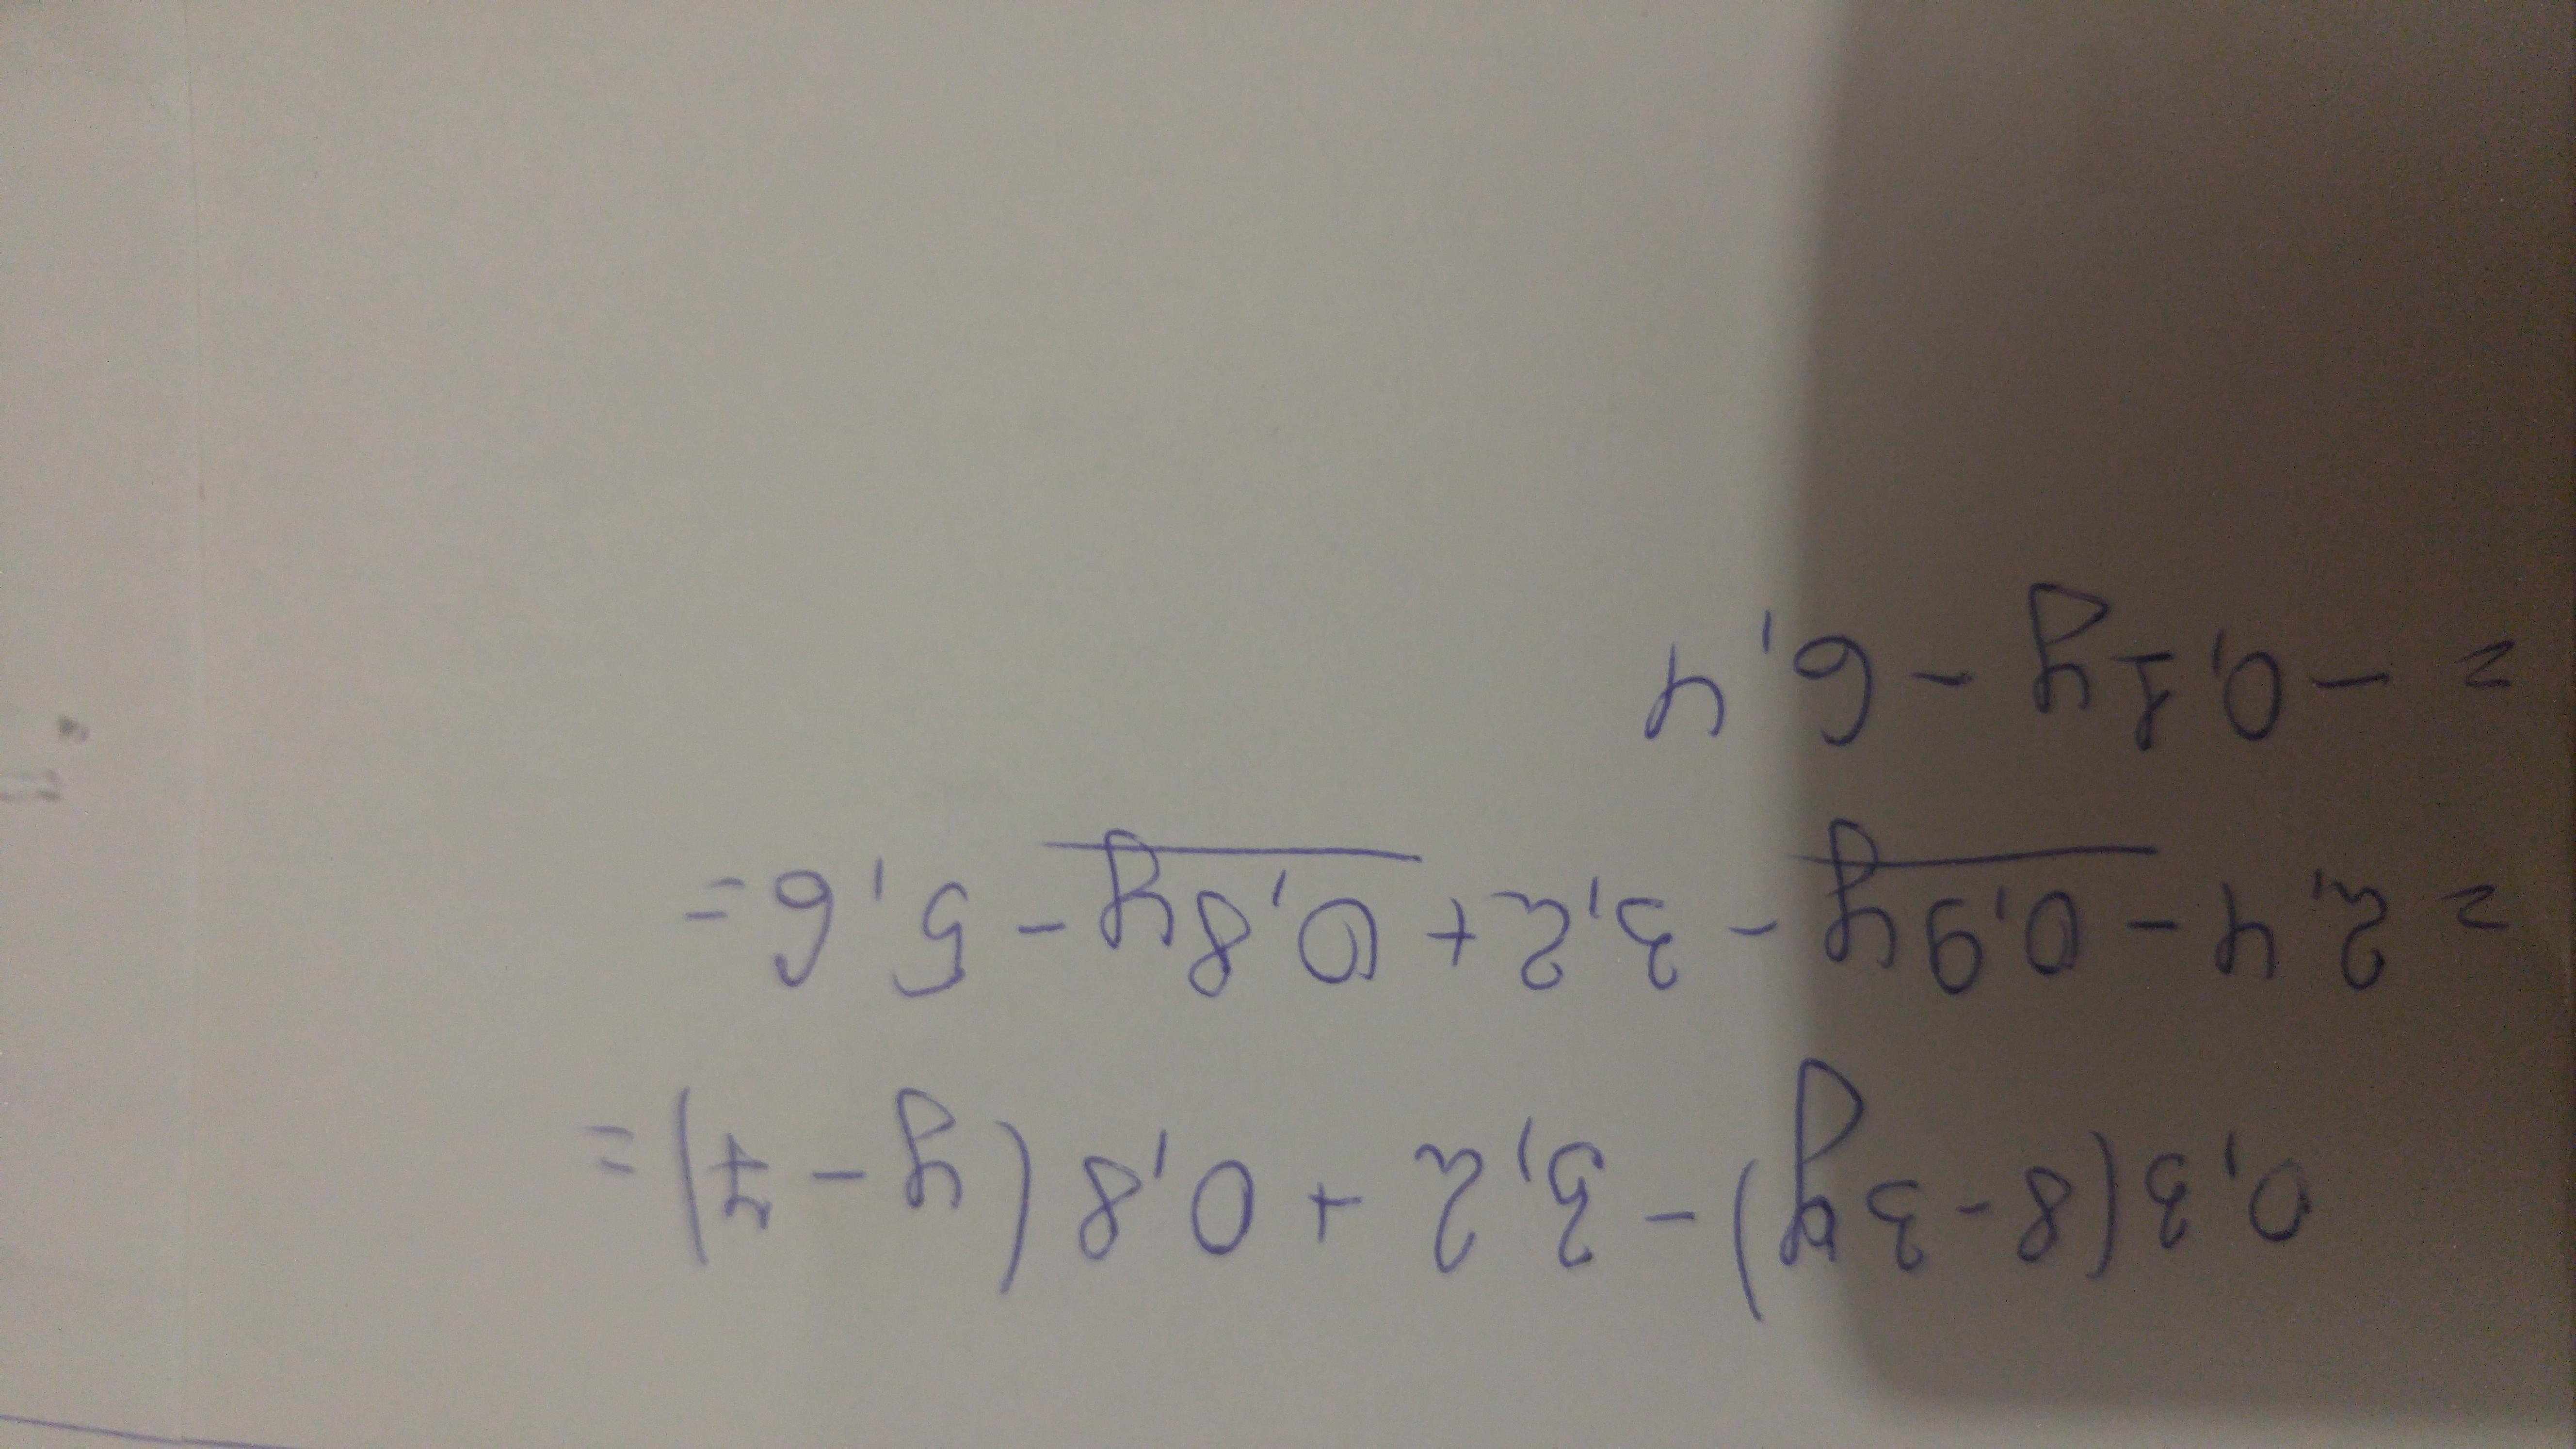 0,3(8-3y)-3,2+0,8(y-7)=
=2,4-0,9y-3,2+0,8y-5,6=
=-0,1y-6,4